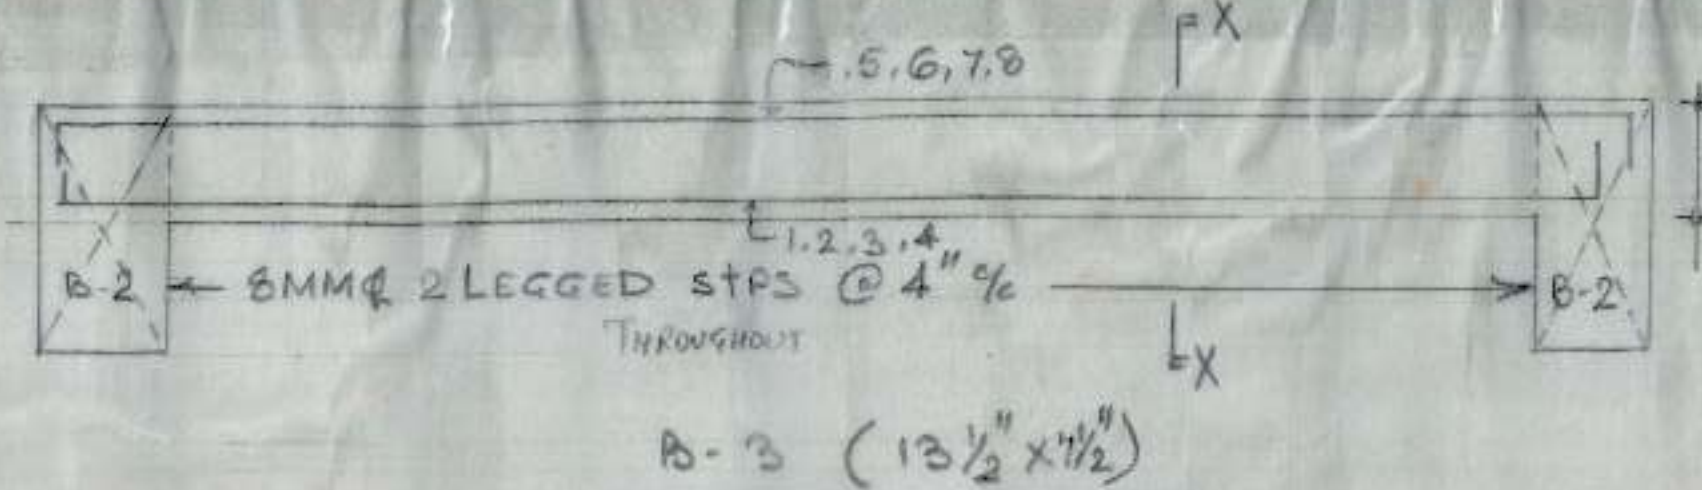 X
5,6,7,8
1.2.3.4
B-2
8MMφ 2 LEGGED STPS @ 4" c/c
B-2
THROUGHOUT
X
B-3 (13½" x 7½")